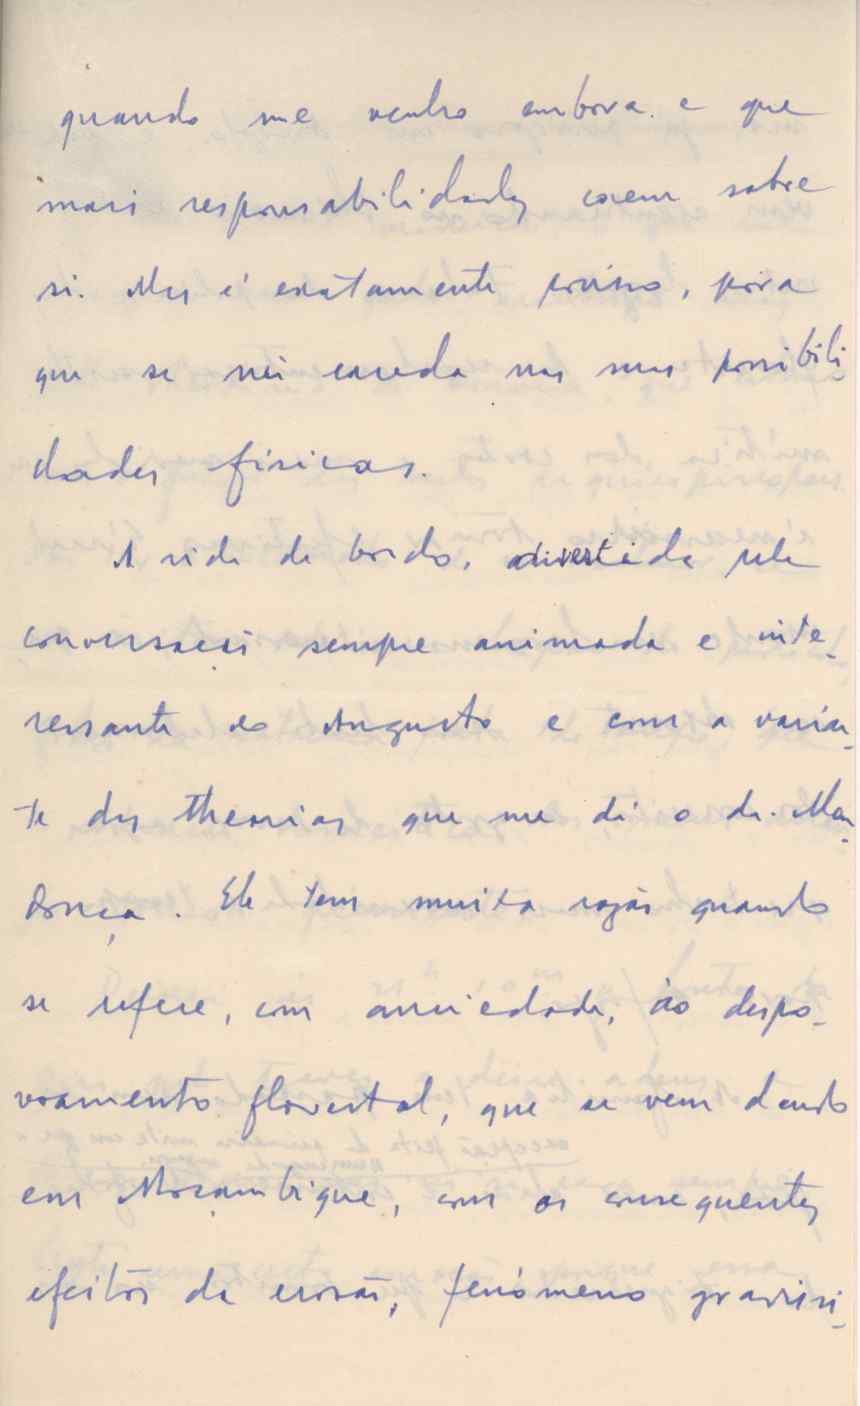 quando me venho embora e que
mais responsabilidades caem sobre
si. Mas é exatamente por isso, para
que se não exceda nas suas possibili-
dades físicas.
A vida de bordo, divertida pela
conversação sempre animada e inte-
ressante do Augusto e com a varian-
te das theorias que me dá o dr. Men-
donça. Ele tem muita razão quando
se refere, com ansiedade, ao despo-
voamento florestal, que se vem dando
em Moçambique, com os consequentes
efeitos da erosão, fenómeno gravissi-